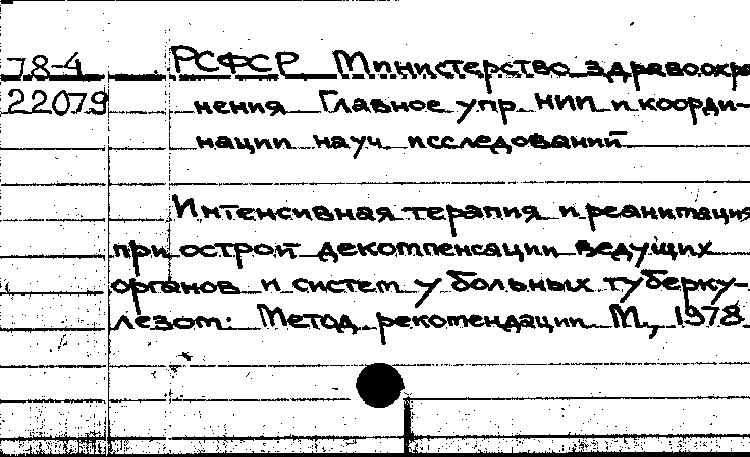 78-4 РСФСР Министерство здравоохра
22079 нения Главное упр. НИИ и коорди-
нации науч. исследований
Интенсивная терапия и реанимация
при острой декомпенсации ведущих
органов и систем у больных туберку-
лезом: Метод. рекомендации М., 1978.